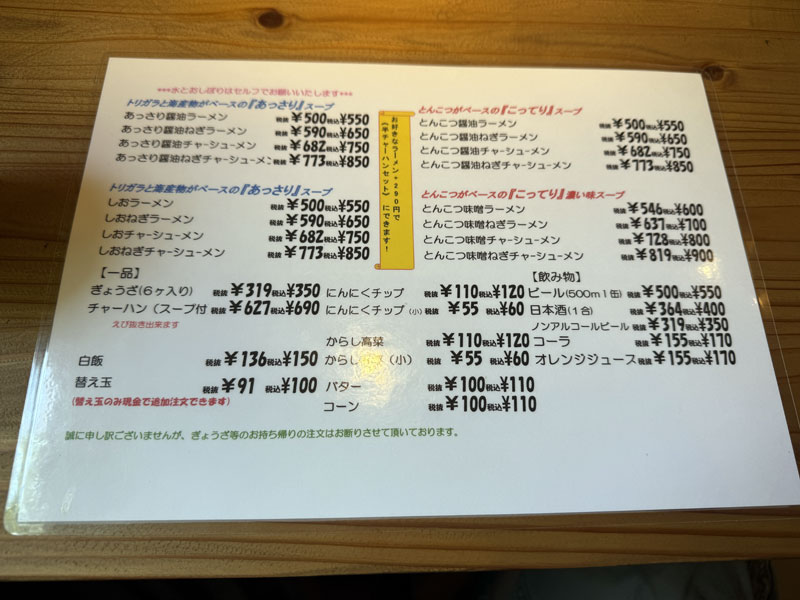 ***水とおしぼりはセルフでお願いいたします***
トリガラと海産物がベースの『あっさり』スープ
あっさり醤油ラーメン 税抜¥500税込¥550
あっさり醤油ねぎラーメン 税抜¥590税込¥650
あっさり醤油チャーシューメン 税抜¥682税込¥750
あっさり醤油ねぎチャーシューメン 税抜¥773税込¥850
トリガラと海産物がベースの『あっさり』スープ
しおラーメン 税抜¥500税込¥550
しおねぎラーメン 税抜¥590税込¥650
しおチャーシューメン 税抜¥682税込¥750
しおねぎチャーシューメン 税抜¥773税込¥850
お好きなラーメン+290円で
《半チャーハンセット》にできます!
とんこつがベースの『こってり』スープ
とんこつ醤油ラーメン 税抜¥500税込¥550
とんこつ醤油ねぎラーメン 税抜¥590税込¥650
とんこつ醤油チャーシューメン 税抜¥682税込¥750
とんこつ醤油ねぎチャーシューメン 税抜¥773税込¥850
とんこつがベースの『こってり』濃い味スープ
とんこつ味噌ラーメン 税抜¥546税込¥600
とんこつ味噌ねぎラーメン 税抜¥637税込¥700
とんこつ味噌チャーシューメン 税抜¥728税込¥800
とんこつ味噌ねぎチャーシューメン 税抜¥819税込¥900
【一品】
ぎょうざ(6ヶ入り) 税抜¥319税込¥350
チャーハン(スープ付 税抜¥627税込¥690
えび抜き出来ます
白飯 税抜¥136税込¥150
替え玉 税抜¥91 税込¥100
(替え玉のみ現金で追加注文できます)
にんにくチップ 税抜¥110税込¥120
にんにくチップ(小) 税抜¥55 税込¥60
からし高菜 税抜¥110税込¥120
からし(小) 税抜¥55 税込¥60
バター 税抜¥100税込¥110
コーン 税抜¥100税込¥110
【飲み物】
ビール(500ml缶) 税抜¥500税込¥550
日本酒(1合) 税抜¥364税込¥400
ノンアルコールビール 税抜¥319税込¥350
コーラ 税抜¥155税込¥170
オレンジジュース 税抜¥155税込¥170
誠に申し訳ございませんが、ぎょうざ等のお持ち帰りの注文はお断りさせて頂いております。